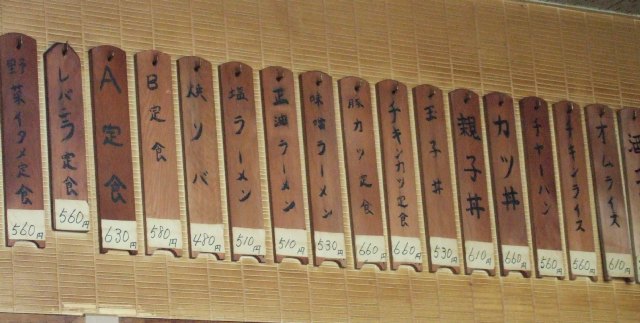 野菜イタメ定食 560円
レバニラ定食 560円
A定食 630円
B定食 580円
焼ソバ 480円
塩ラーメン 510円
正油ラーメン 510円
味噌ラーメン 530円
豚カツ定食 660円
チキンカツ定食 660円
玉子丼 530円
親子丼 610円
カツ丼 660円
チャーハン 560円
チキンライス 560円
オムライス 610円